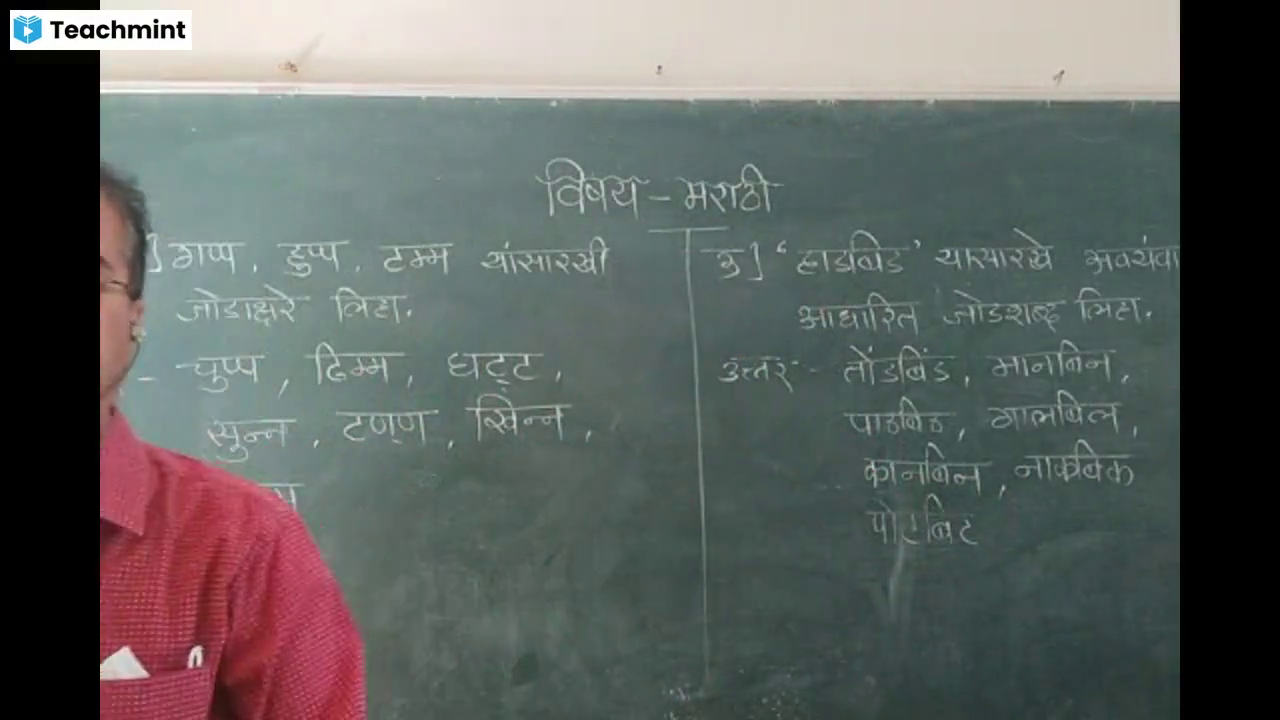 Teachmint
विषय - मराठी
] गप्प, डुप्प, टम्म यांसारखी
जोडाक्षरे लिहा.
- चुप्प, ढिम्म, घट्ट,
सुन्न, टण्ण, खिन्न,
३] ' हाडबिड ' यासारखे अवयंवा
आधारित जोडशब्द लिहा.
उत्तर - तोंडबिंड, मानबिन,
पाठबिठ, गालबिल,
कानबिन, नाकबिक
पोटबिट